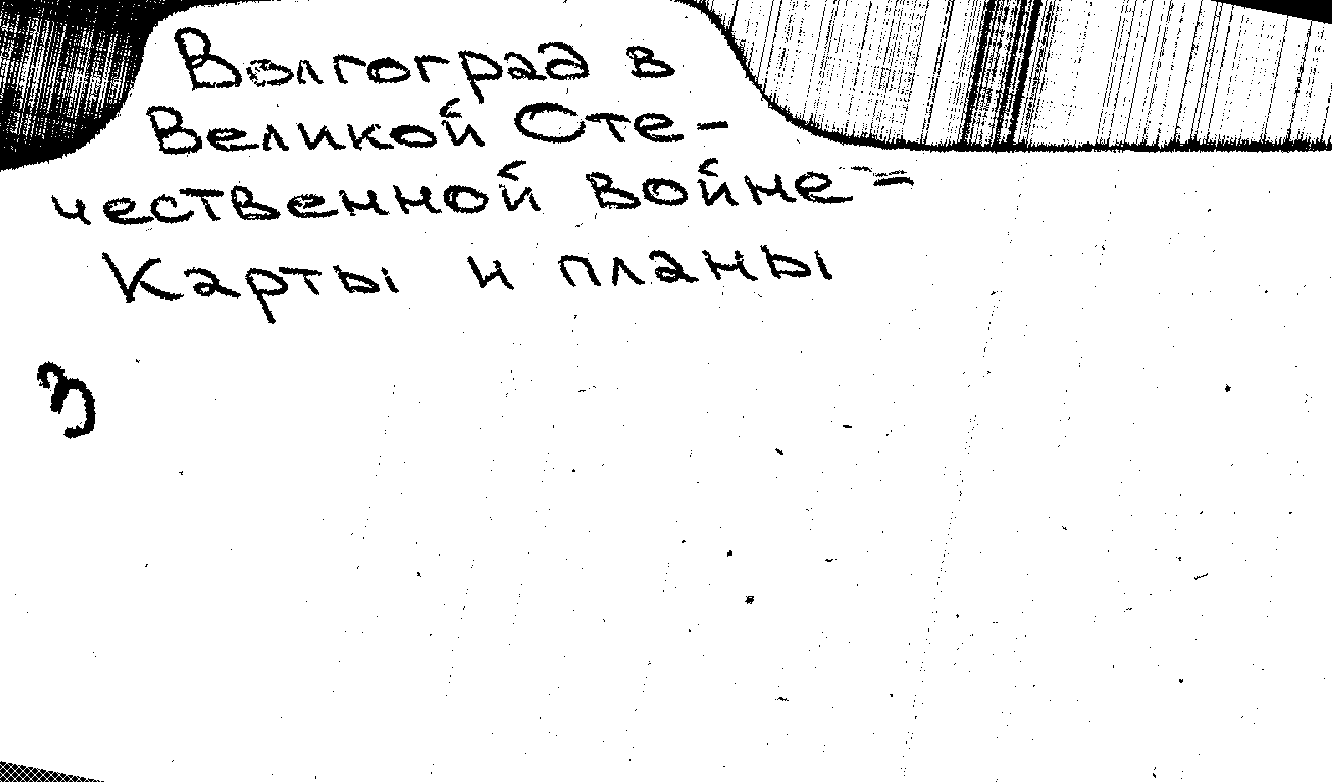 Волгоград в
Великой Оте-
чественной войне =
Карты и планы